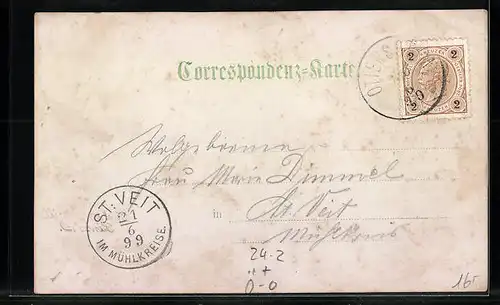 Correspondenz-Karte
2 2
2 2
Wolgeborene
Frau Marie Dimmel
in St. Veit
Mühlkreis
ST. VEIT
21
6
99
IM MÜHLKREISE.
24-2
0-0